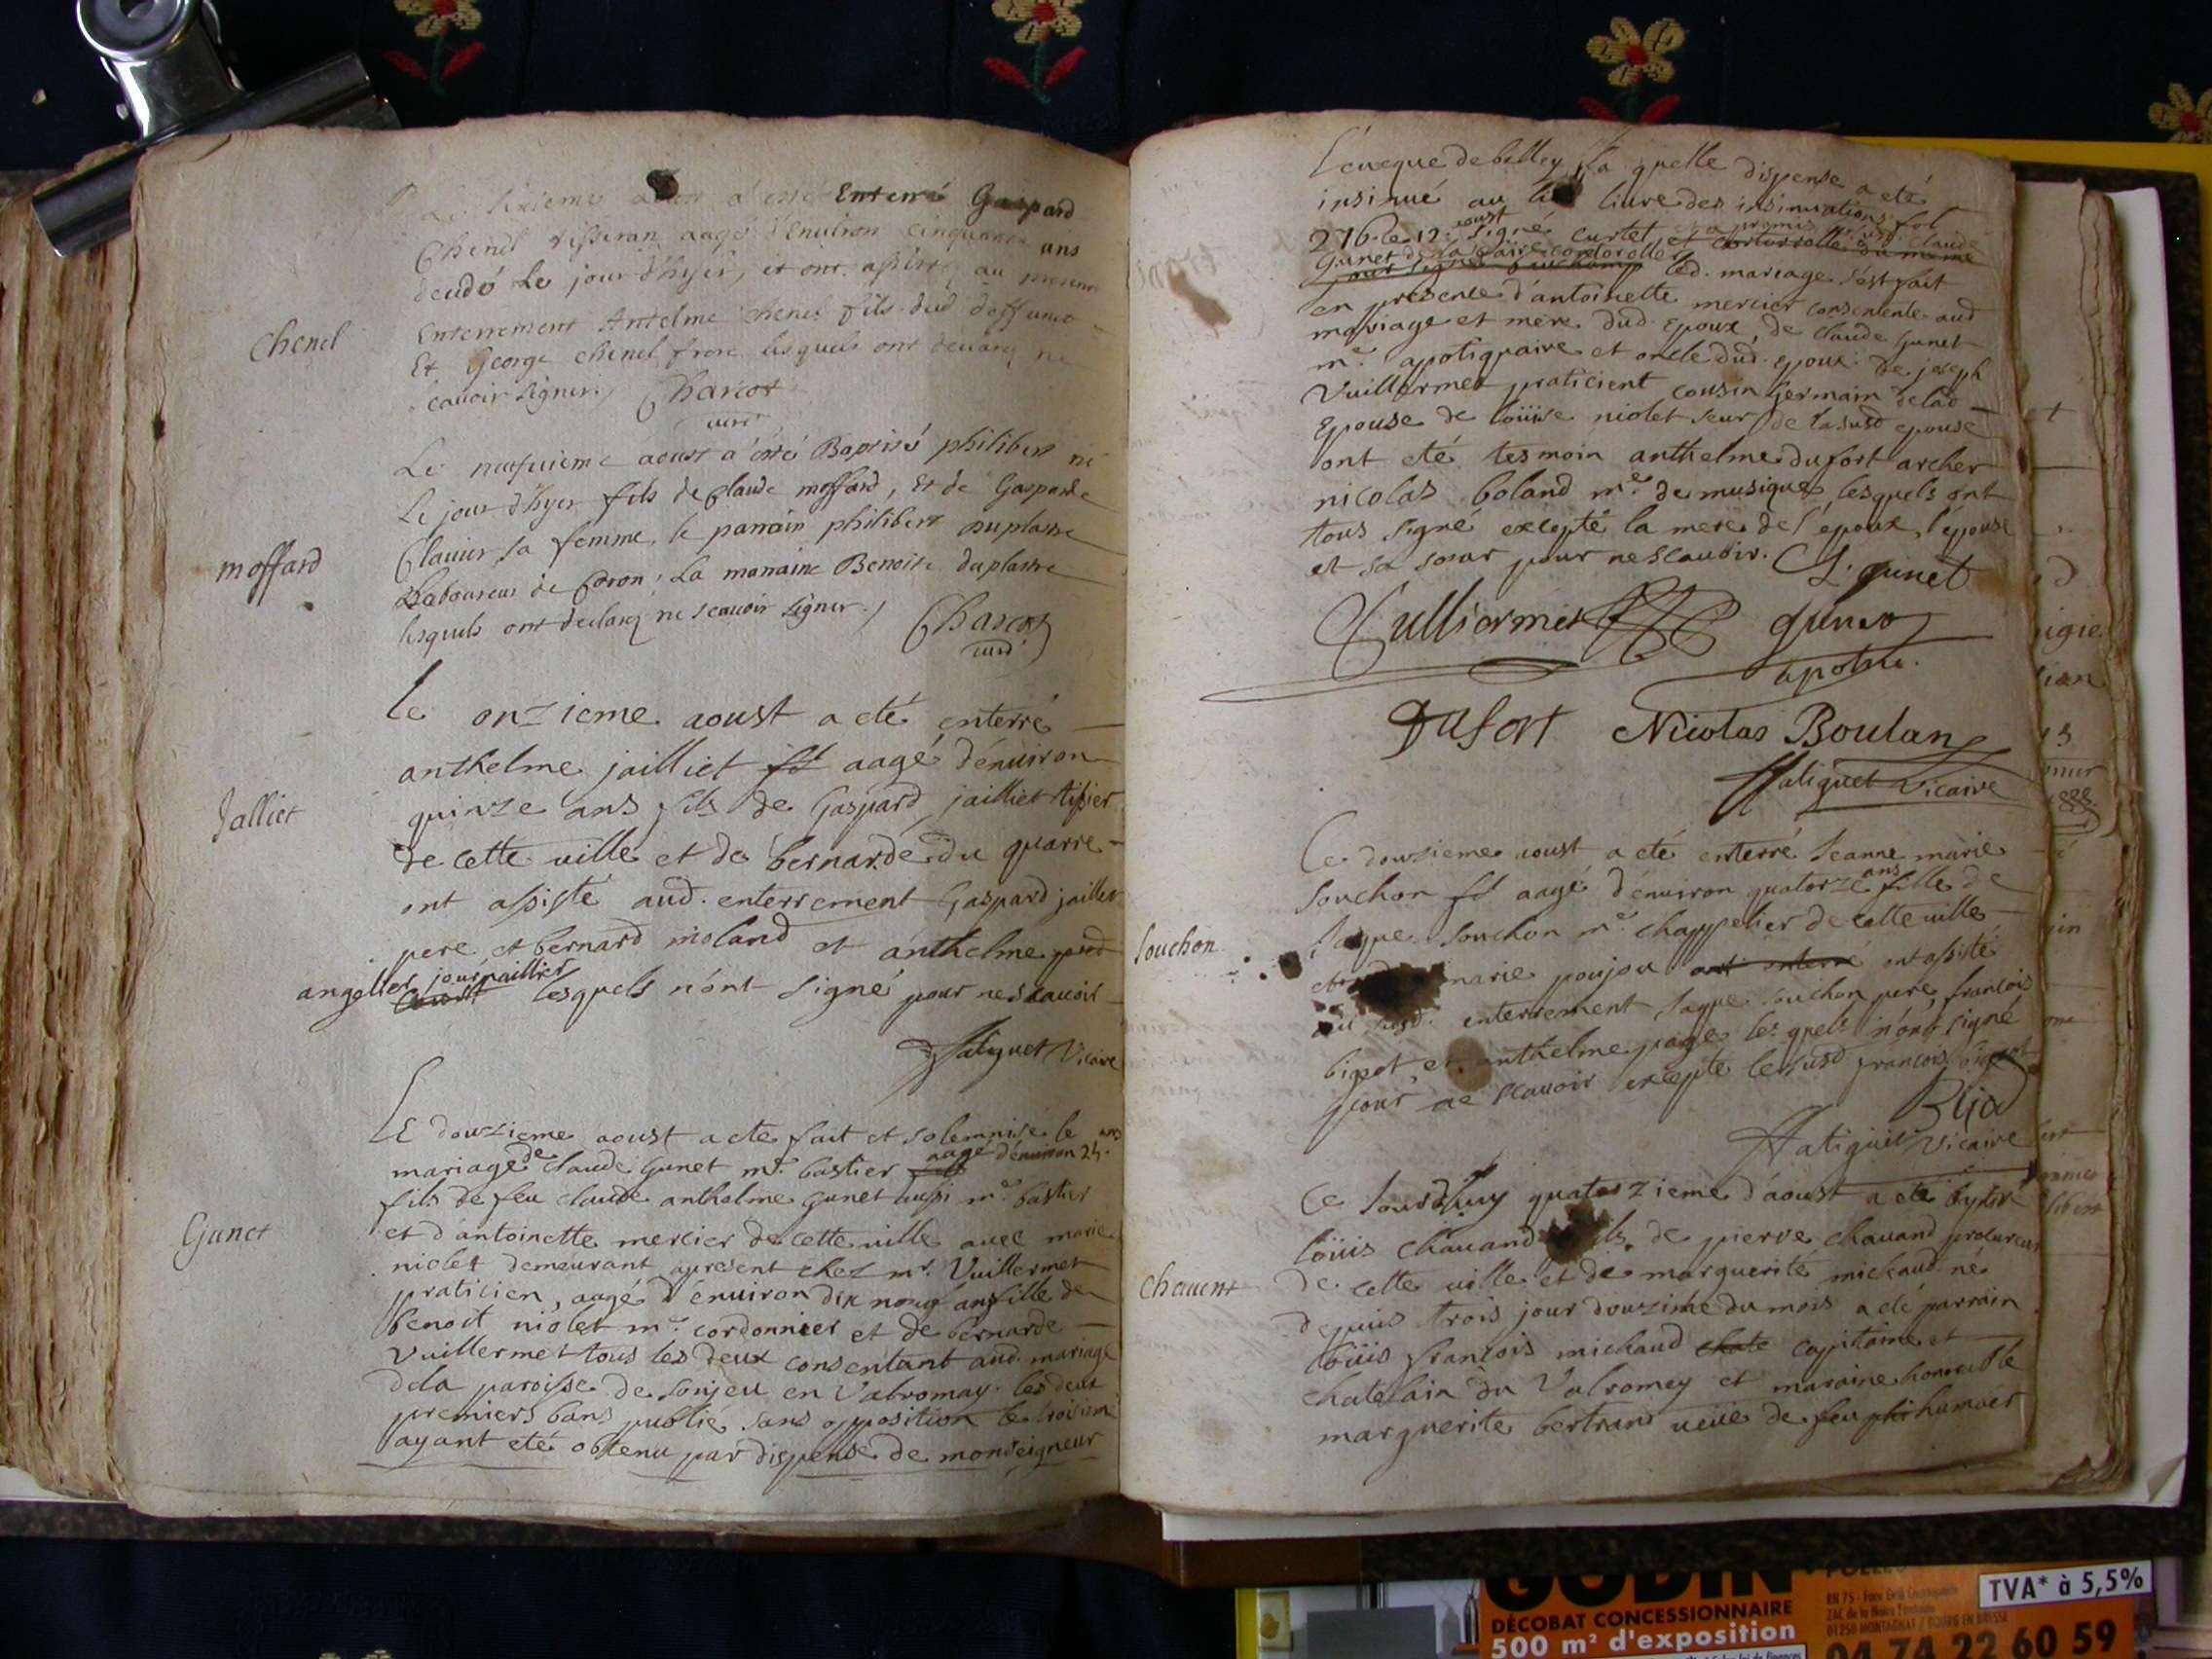 a esté Enterré Gaspard
Chenel tisseran aagé d'enuiron cinquante ans
decedé le jour d'hyer, et ont assisté au present
Chenel
Enterrement Antelme Chenel fils dud deffunct
Et George Chenel frere lesquels ont declaré ne
scauoir signer. Charcot
vic
Le neufuieme aoust a esté Baptisé philibert né
Le jour d'hyer fils de Claude moffard, Et de Gasparde
Clauier sa femme, le parrain philibert duplastre
moffard
Laboureur de Coron, La marraine Benoite duplastre
lesquels ont declaré ne scauoir signer. Charcot
vic
le onzieme aoust a eté enterré
anthelme jailliet aagé d'énuiron
Jalliet
quinze ans fils de Gaspard jailliet tissier
de cette uille et de bernarde du quarre
ont assisté aud. enterrement Gaspard jaillet
pere et bernard moland et anthelme
angellot journaillier lesquels n'ont signé pour ne scauoir
fatiguet Vicaire
Le douzieme aoust a eté fait et solemnisé le
mariage de claude Gunet mr. bastier aagé d'enuiron 24. ans
fils de feu claude anthelme gunet aussi me. bastier
Gunet
et d'antoinette mercier de cette uille auec marie
niolet demeurant apresent chez mr. Vuillermet
praticien, aagé d'énuiron dix neuf ans fille de
benoit niolet me. cordonnier et de bernarde
Vuillermet tous les deux consentant aud. mariage
dela paroisse de Sonjeu en Valromay. les deux
premiers bans publié sans opposition le troisieme
ayant eté obtenu par dispense de monseigneur
L'eueque de belley, la quelle dispense a eté
insinué au liure des insinuations fol
276. le 12. aoust signé curtet et a promis claude
Gunet de la faire led. mariage s'est fait
en presence d'antoinette mercier consentente aud
mariage et mere dud. epoux, de claude gunet
me. apotiquaire et oncle dud. epoux. de joseph
Vuillermet praticient cousin germain de lad
epouse de loüise niolet seur de lasusd epouse
ont eté tesmoin anthelme dufort archer
nicolas boland me. de musique, lesquels ont
tous signé excepté la mere de l'epoux, l'épouse
et sa soeur pour ne scauoir. C. gunet
Vulliermet gunet
apotre.
Dufort Nicolas Boulan
fatiguet Vicaire
Le douzieme aoust a eté enterré Jeanne marie
Souchon aagé d'énuiron quatorze ans fille de
Souchon
Jaque Souchon me. chappelier de cette uille
et marie poujou ont assisté
au susd. enterrement Jaque Souchon pere, francois
bigot et anthelme page lesquels n'ont signé
pour ne scauoir excepté le susd francois bigot
Bigot
fatiguet Vicaire
Ce Jourdhuy quatorzieme d'aoust a eté bptisé
loüis chauand fils de pierre chauand procureur
Chauent
de cette uille et de marguerite michaud né
depuis trois jour douzime du mois a eté parrain
loüis francois michaud capitaine et
chatelain du Valromey et maraine honorable
marguerite bertrand ueüe de feu humaer
GODIN
DÉCOBAT CONCESSIONNAIRE
500 m² d'exposition
TVA* à 5,5%
04 74 22 60 59